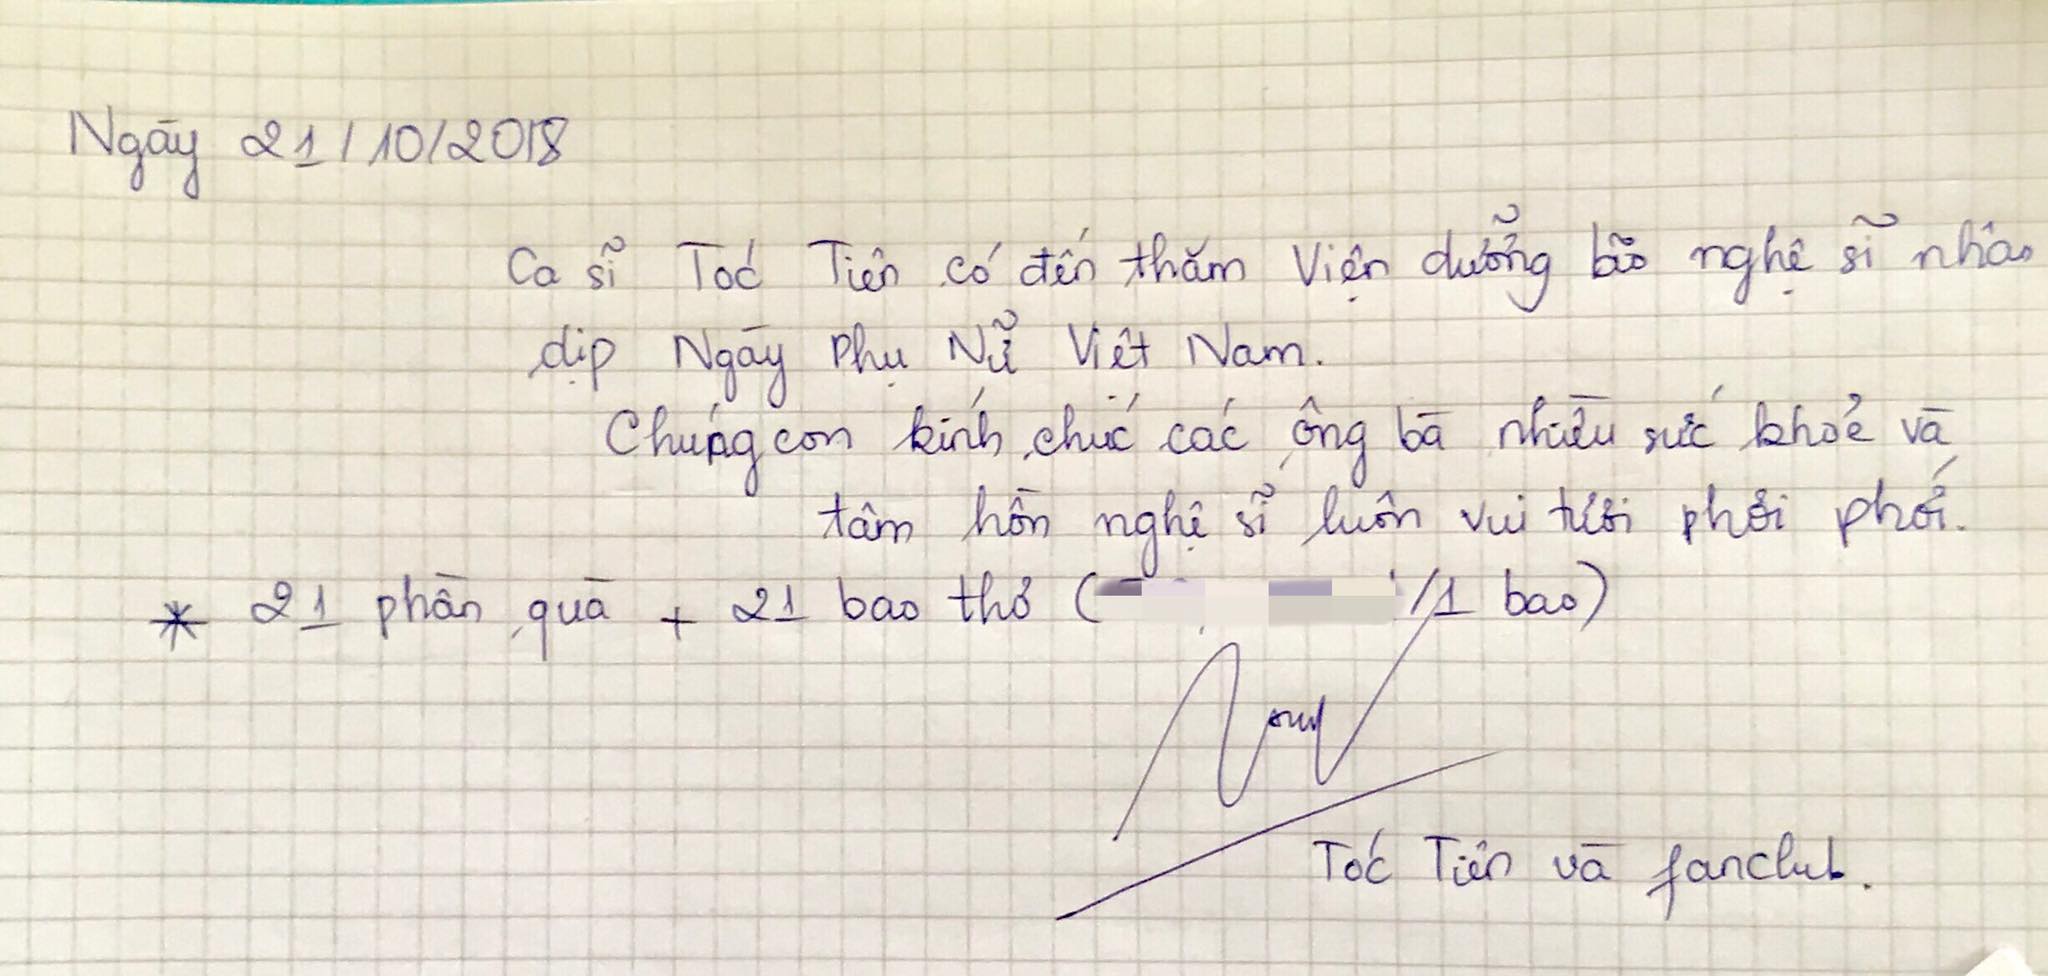 Ngày 21/10/2018
Ca sĩ Tóc Tiên có đến thăm Viện dưỡng lão nghệ sĩ nhân
dịp Ngày Phụ Nữ Việt Nam.
Chúng con kính chúc các ông bà nhiều sức khoẻ và
tâm hồn nghệ sĩ luôn vui tươi phơi phới.
* 21 phần quà + 21 bao thơ ( /1 bao)
Tóc Tiên và fanclub.